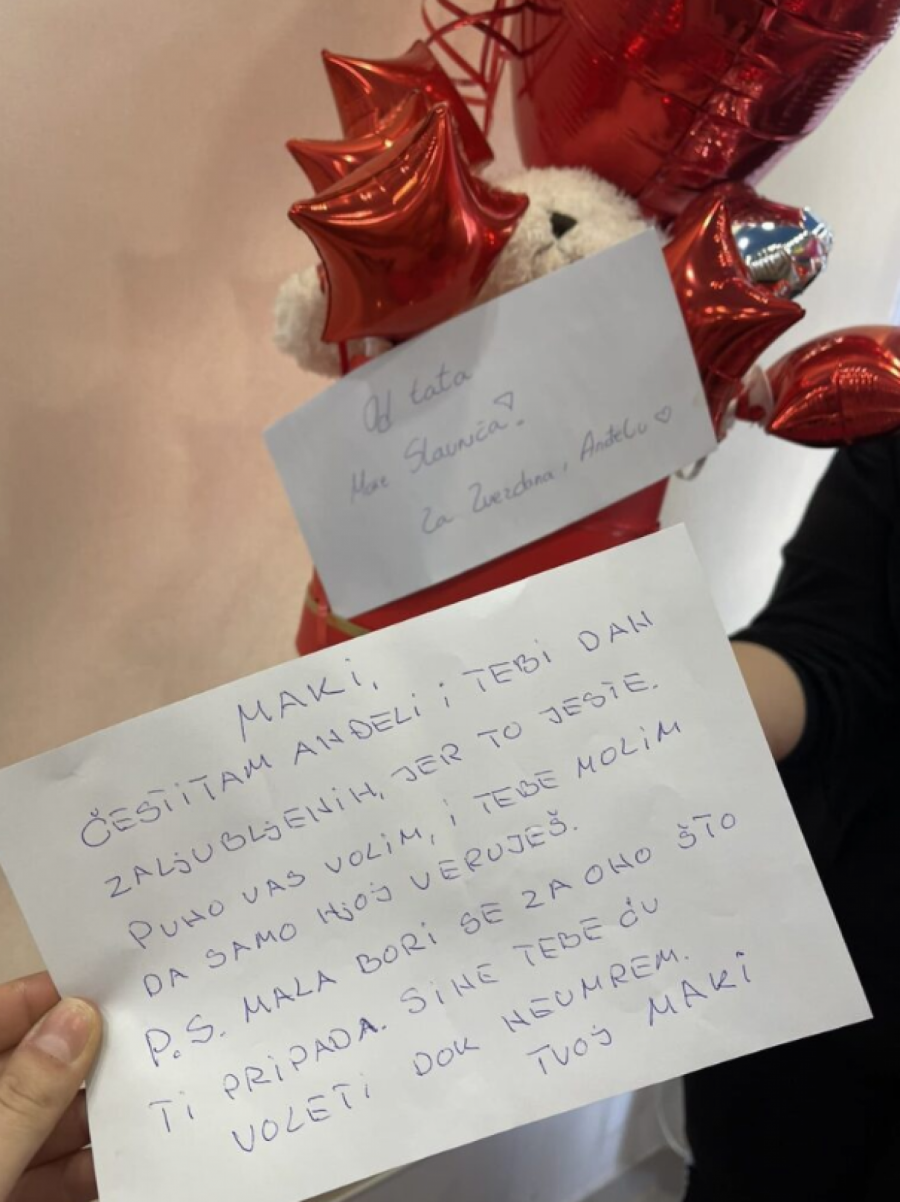 Od tata
Mare Slavnića
Za Zvezdana i Anđelu
MAKI,
ČESTITAM ANĐELI I TEBI DAN
ZALJUBLJENIH, JER TO JESTE.
PUNO VAS VOLIM, I TEBE MOLIM
DA SAMO NJOJ VERUJEŠ.
P.S. MALA BORI SE ZA ONO ŠTO
TI PRIPADA. SINE TEBE ĆU
VOLETI DOK NEUMREM.
TVOJ MAKI